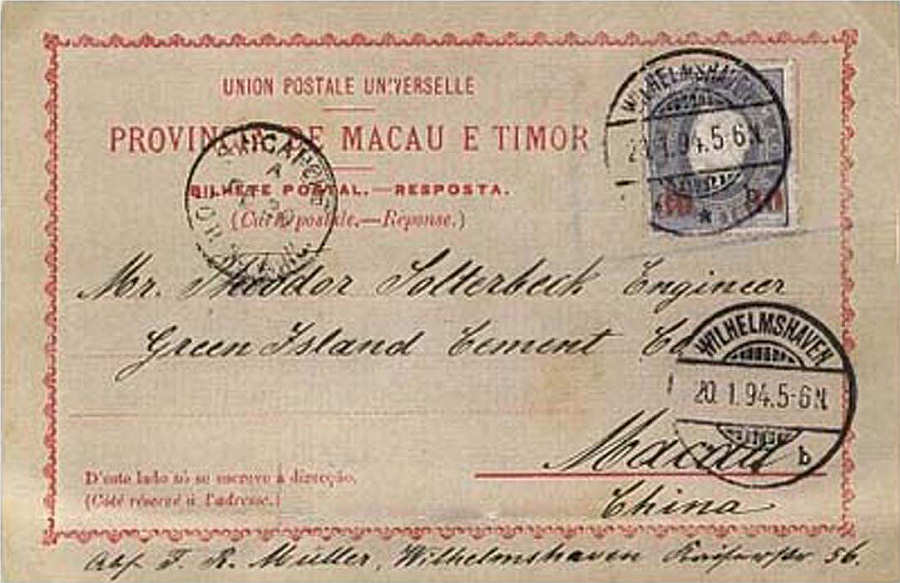 UNION POSTALE UNIVERSELLE
PROVINCIA DE MACAU E TIMOR
BILHETE POSTAL.—RESPOSTA.
(Carte postale.—Réponse.)
WILHELMSHAVEN
20.1.94.5-6N.
80 80
SINGAPORE
Mr. Theodor Solterbeck Engineer
Green Island Cement Co
WILHELMSHAVEN
20.1.94.5-6N.
b
Macau
China
D'este lado só se escreve a direcção.
(Côté réservé à l'adresse.)
Abs. T. R. Müller, Wilhelmshaven 56.